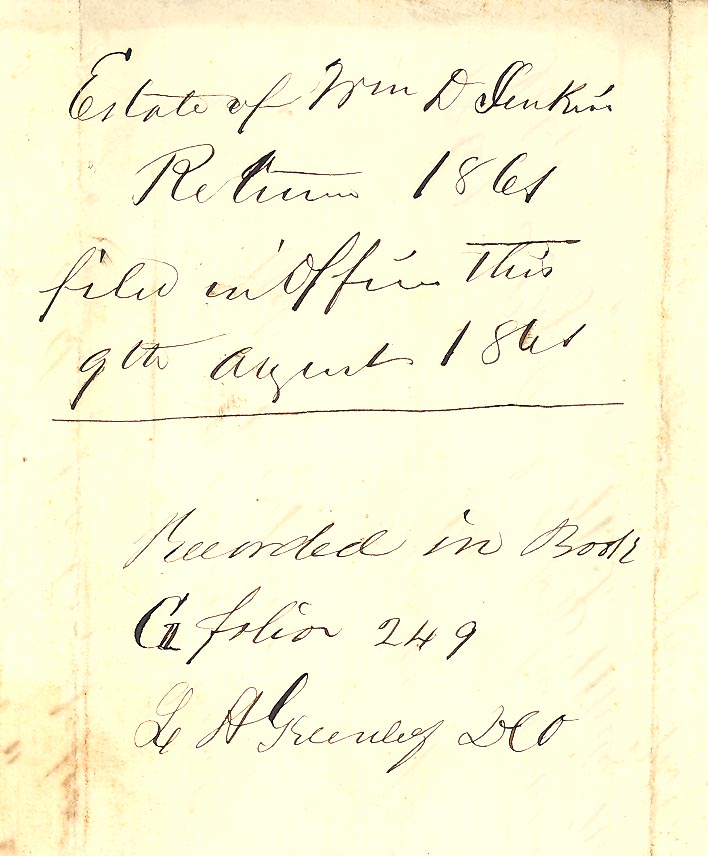 Estate of Wm D Jenkins
Return 1861
filed in Office this
9th August 1861
Recorded in Book
G folio 249
L A Greenleaf DCO